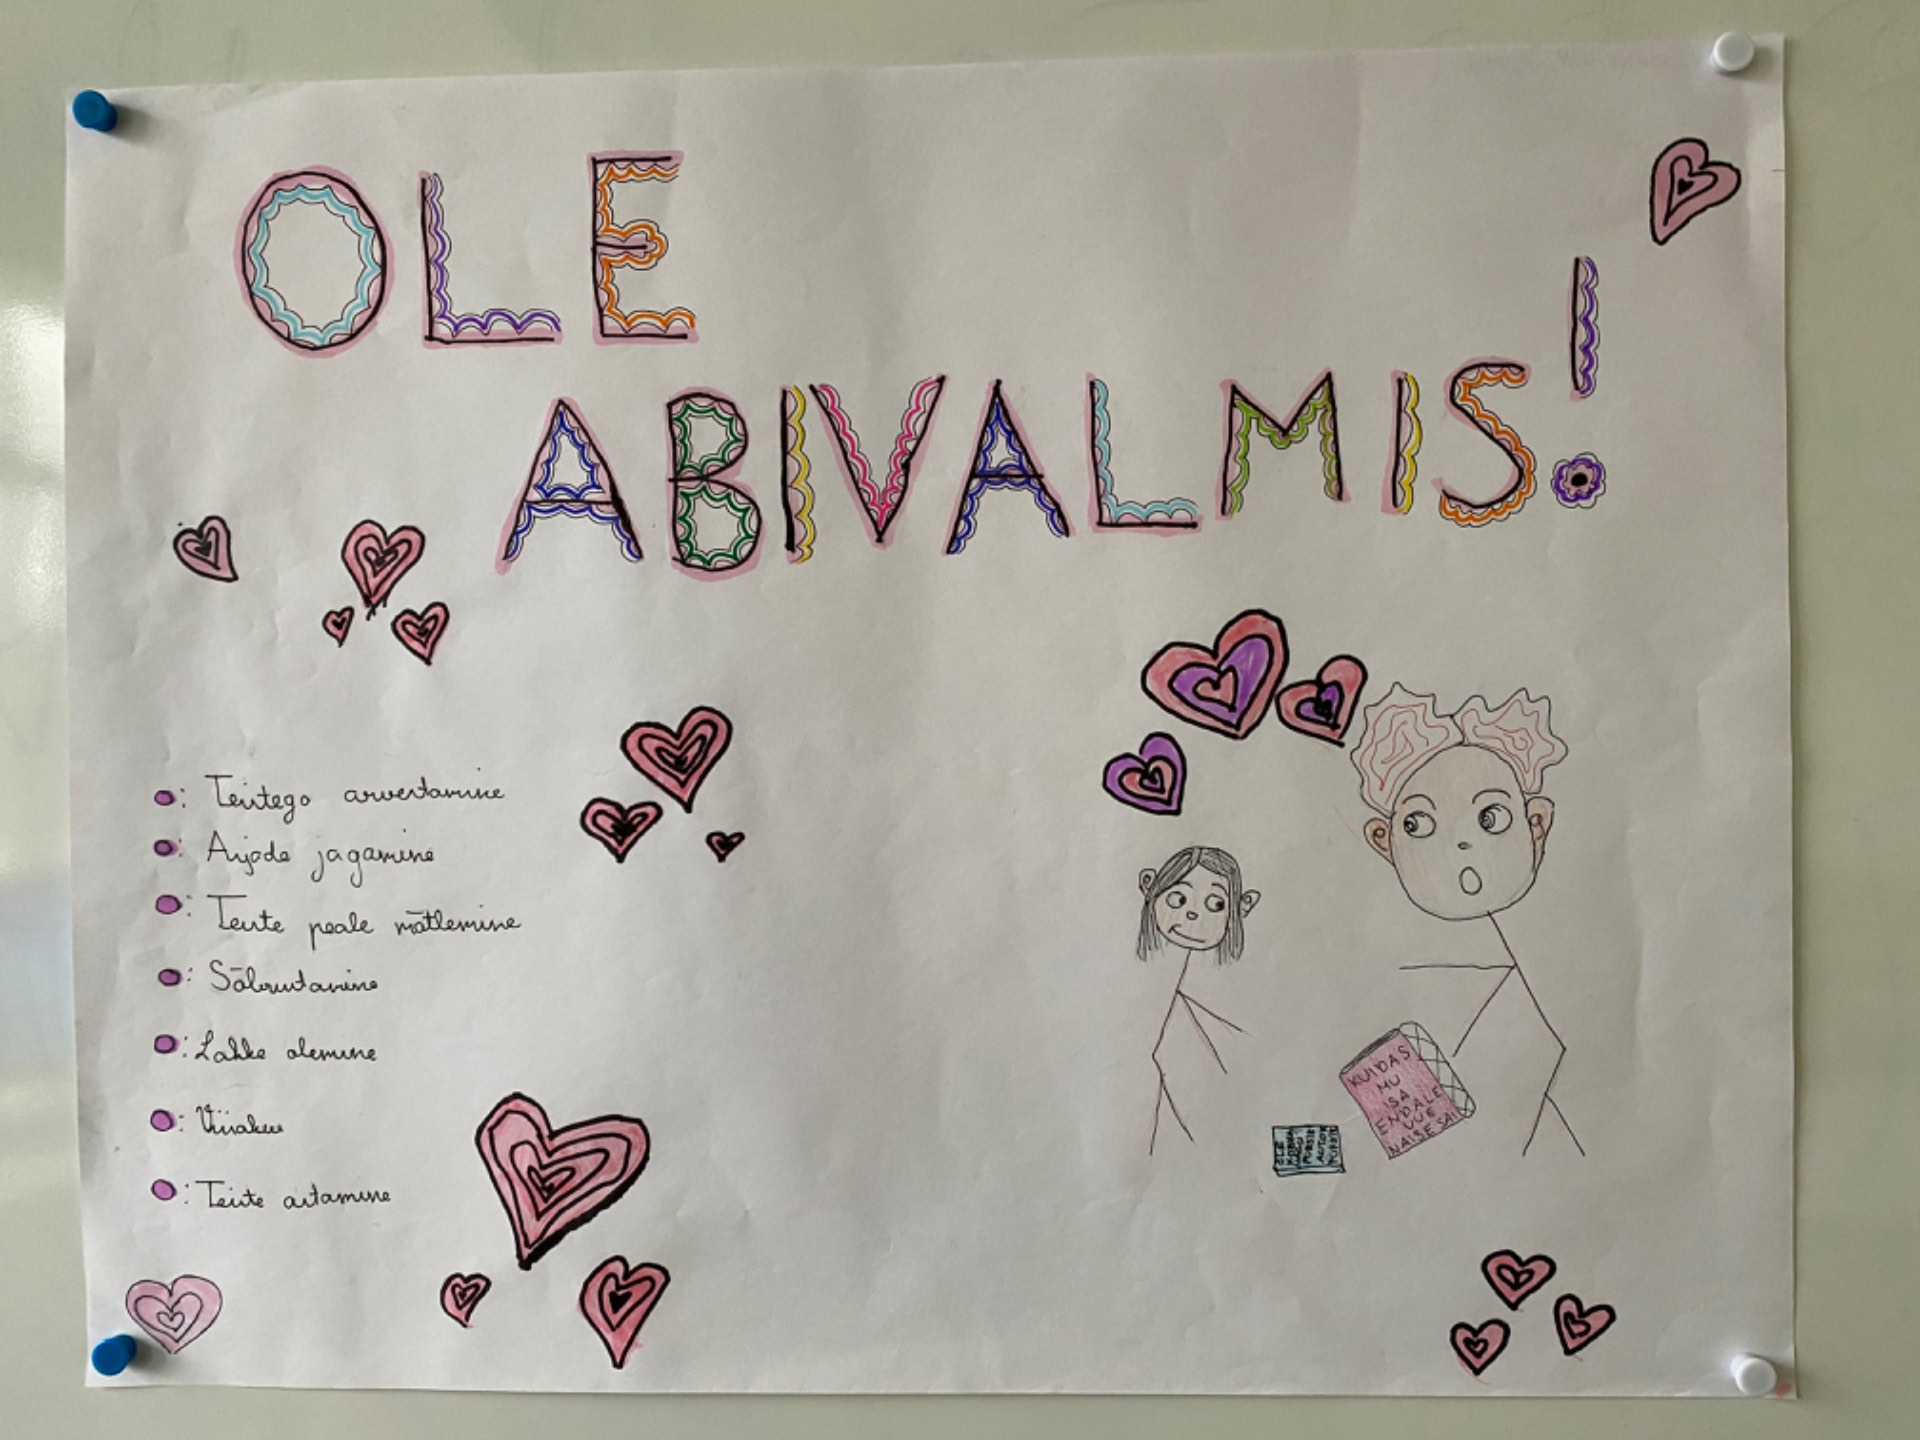 OLE
ABIVALMIS!
Teistega arvestamine
Asjade jagamine
Teiste peale mõtlemine
Sõbrustamine
Lahke olemine
Viisakus
Teiste aitamine
KUIDAS
MU
ISA
ENDALE
UUE
NAISE SAI